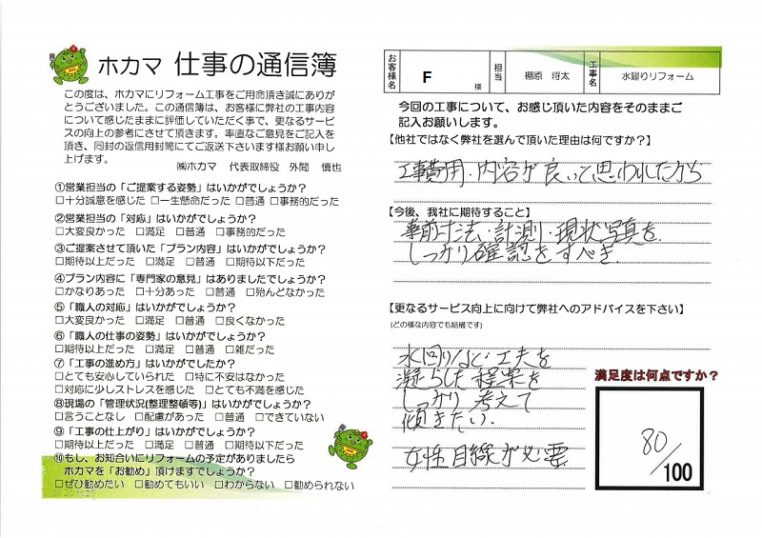 ホカマ 仕事の通信簿
この度は、ホカマにリフォーム工事をご用命頂き誠にありが
とうございました。この通信簿は、お客様に弊社の工事内容
について感じたままに評価していただく事で、更なるサービ
スの向上の参考にさせて頂きます。率直なご意見をご記入を
頂き、同封の返信用封筒にてご返送下さいます様お願い申し
上げます。
㈱ホカマ 代表取締役 外間 慎也
①営業担当の「ご提案する姿勢」はいかがでしょうか?
□十分誠意を感じた □一生懸命だった □普通 □事務的だった
②営業担当の「対応」はいかがでしょうか?
□大変良かった □満足 □普通 □事務的だった
③ご提案させて頂いた「プラン内容」はいかがでしょうか?
□期待以上だった □満足 □普通 □期待以下だった
④プラン内容に「専門家の意見」はありましたでしょうか?
□かなりあった □十分あった □普通 □殆んどなかった
⑤「職人の対応」はいかがでしょうか?
□大変良かった □満足 □普通 □良くなかった
⑥「職人の仕事の姿勢」はいかがでしょうか?
□期待以上だった □満足 □普通 □雑だった
⑦「工事の進め方」はいかがでしたか?
□とても安心していられた □特に不安はなかった
□対応に少しストレスを感じた □とても不満を感じた
⑧現場の「管理状況(整理整頓等)」はいかがでしょうか?
□言うことなし □配慮があった □普通 □できていない
⑨「工事の仕上がり」はいかがでしょうか?
□期待以上だった □満足 □普通 □期待以下だった
⑩もし、お知合いにリフォームの予定がありましたら
ホカマを「お勧め」頂けますでしょうか?
□ぜひ勧めたい □勧めてもいい □わからない □勧められない
お客様名 F 様 担当 棚原 将太 工事名 水廻りリフォーム
今回の工事について、お感じ頂いた内容をそのままご
記入お願いします。
【他社ではなく弊社を選んで頂いた理由は何ですか?】
工事費用・内容が良いと思われたから
【今後、我社に期待すること】
事前寸法・計測・現状写真を
しっかり確認をすべき.
【更なるサービス向上に向けて弊社へのアドバイスを下さい】
(どの様な内容でも結構です)
水回りなど・工夫を
凝らした提案を
しっかり考えて
頂きたい.
女性目線が必要
満足度は何点ですか?
80/100